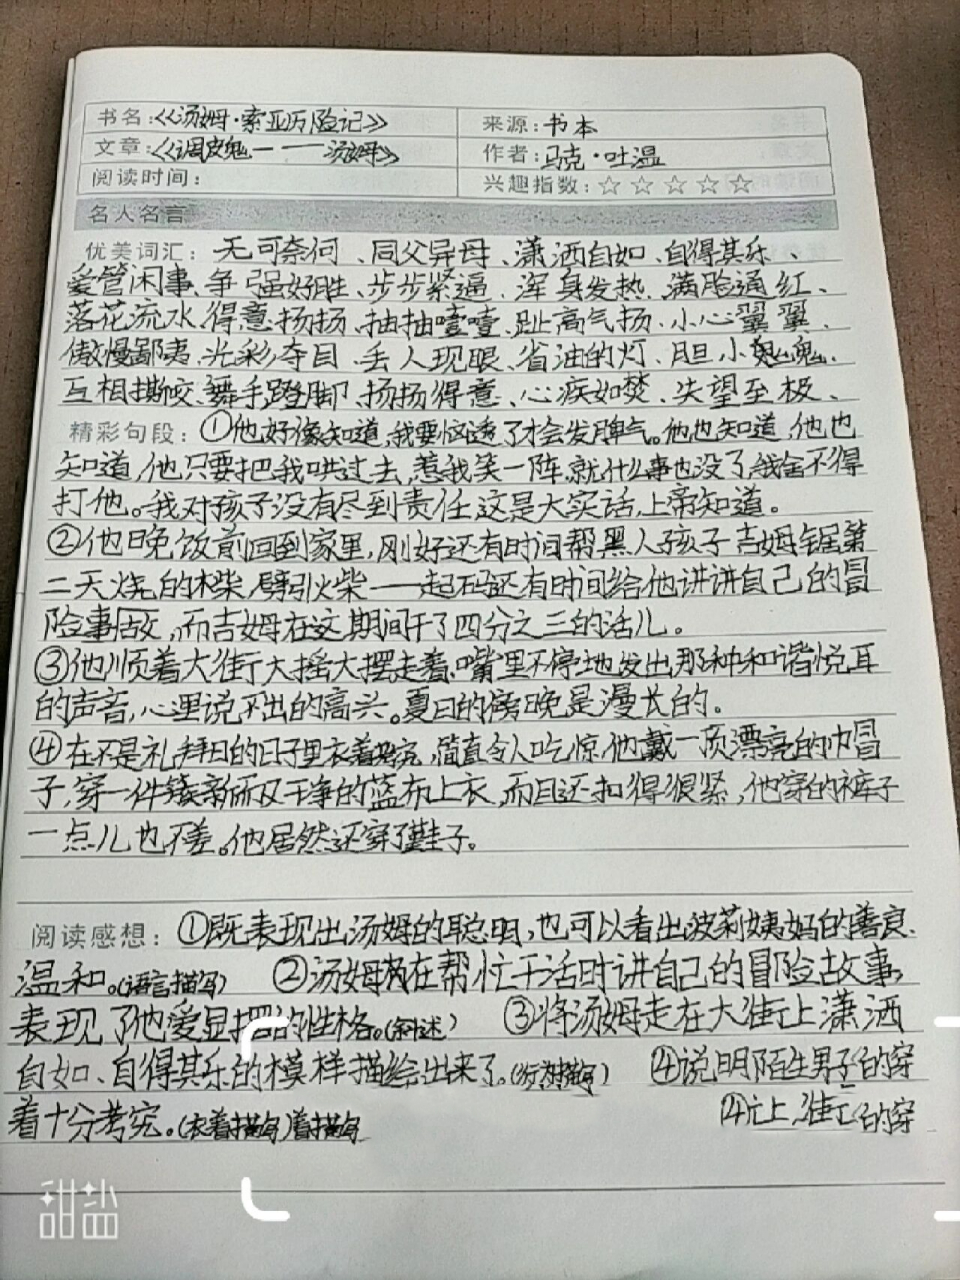 书名:《汤姆·索亚历险记》 来源:书本
文章:《调皮鬼一一一汤姆》 作者:马克·吐温
阅读时间: 兴趣指数:☆☆☆☆☆
名人名言
优美词汇:无可奈何、同父异母、潇洒自如、自得其乐、
爱管闲事、争强好胜、步步紧逼、浑身发热、满脸通红、
落花流水、得意扬扬、抽抽噎噎、趾高气扬、小心翼翼、
傲慢鄙夷、光彩夺目、丢人现眼、省油的灯、胆小鬼鬼、
互相撕咬、舞手蹬脚、扬扬得意、心疾如焚、失望至极、
精彩句段:①他好像知道,我要恼透了才会发脾气。他也知道,他也
知道,他只要把我哄过去,惹我笑一阵,就什么事也没了,我舍不得
打他。我对孩子没有尽到责任,这是大实话,上帝知道。
②他晚饭前回到家里,刚好还有时间帮黑人孩子吉姆锯第
二天烧的木柴,劈引火柴——起码还有时间给他讲讲自己的冒
险事故,而吉姆在这期间干了四分之三的活儿。
③他顺着大街大摇大摆走着,嘴里不停地发出那种和谐悦耳
的声音,心里说不出的高兴。夏日的傍晚是漫长的。
④在不是礼拜日的日子里衣着考究,简直令人吃惊,他戴一顶漂亮的巾冒
子,穿一件崭新而又干净的蓝布上衣,而且还扣得很紧,他穿的裤子
一点儿也不差。他居然还穿了鞋子。
阅读感想:①既表现出汤姆的聪明,也可以看出波莉姨妈的善良、
温和。(语言描写) ②汤姆在帮忙干活时讲自己的冒险故事,
表现了他爱显摆的性格。(叙述) ③将汤姆走在大街上潇洒
自如、自得其乐的模样描绘出来了。 ④说明陌生男子的穿
着十分考究。(衣着描写)着描写 的穿
甜盐